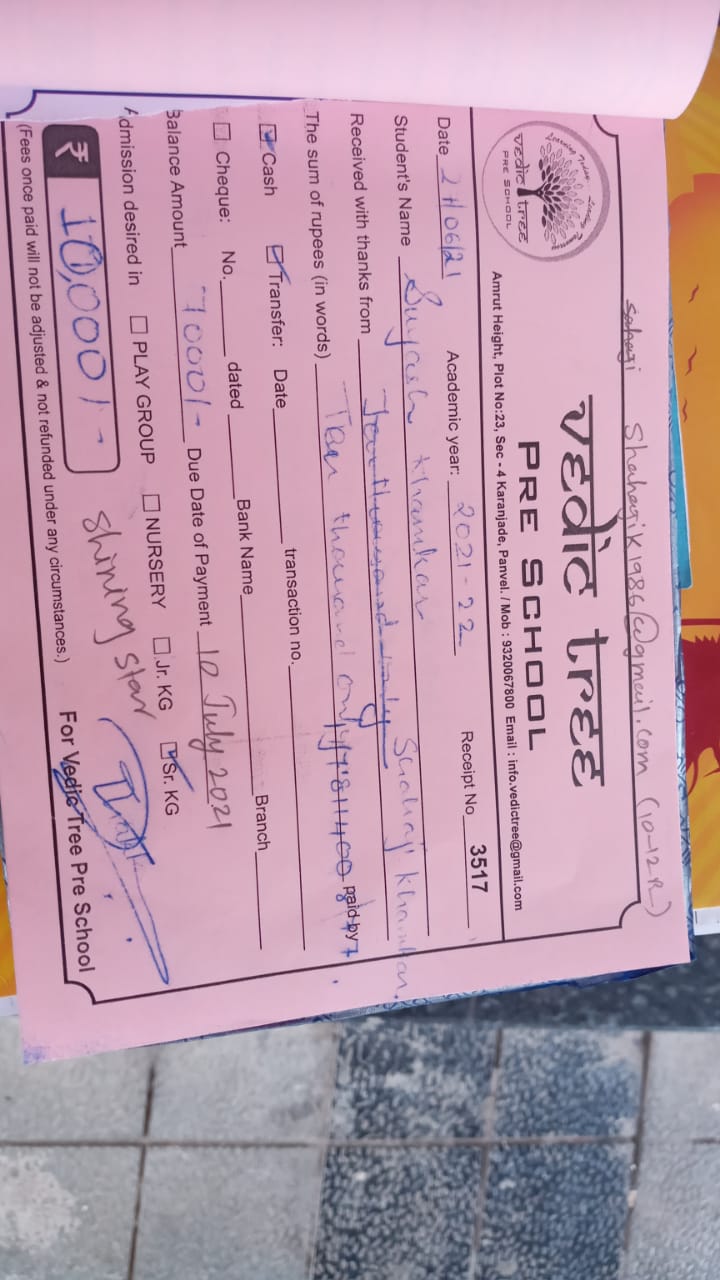 sahaji shahajik1986@gmail.com (10-12 R)
Learning Today
vedic tree
PRE SCHOOL
vedic tree
PRE SCHOOL
Amrut Height, Plot No:23, Sec -4 Karanjade, Panvel. / Mob : 9320067800 Email : info.vedictree@gmail.com
Date 21/06/21 Academic year: 2021-22 Receipt No 3517
Student's Name Suyash Khamkar
Received with thanks from Four thousand only Shahaji Khamkar.
The sum of rupees (in words) Ten thousand only paid by
Cash Transfer: Date transaction no.
Cheque: No. dated Bank Name Branch
Balance Amount 7000/- Due Date of Payment 10 July 2021
Admission desired in PLAY GROUP NURSERY Jr. KG Sr. KG
₹ 10,000/- Shining Star
For Vedic Tree Pre School
(Fees once paid will not be adjusted & not refunded under any circumstances.)